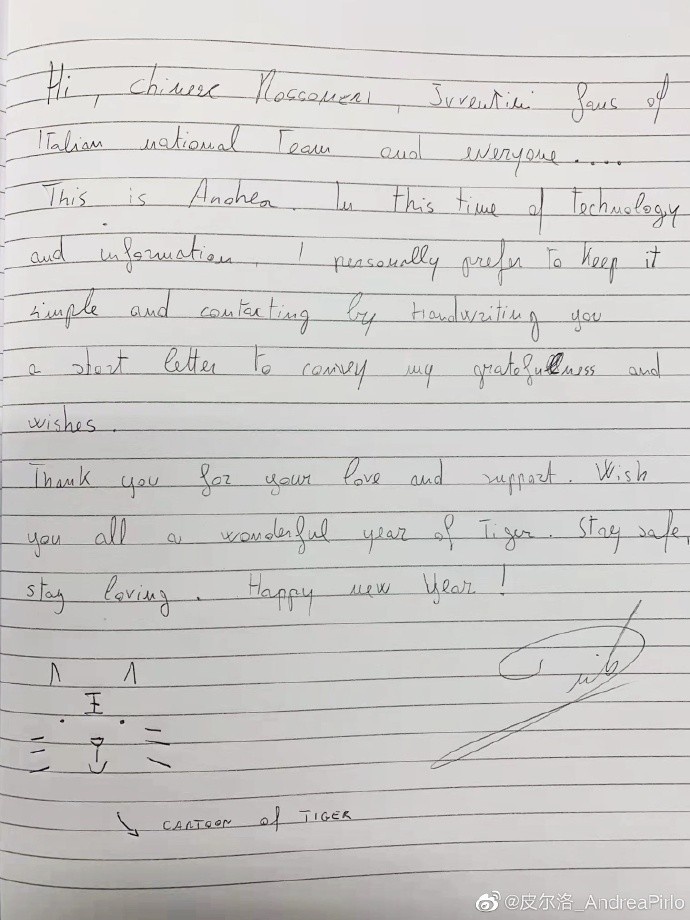 Hi, Chinese Rossoneri, Juventini fans of
Italian national Team and everyone....
This is Andrea. In this time of Technology
and information, I personally prefer to keep it
simple and contacting by Handwriting you
a short letter to convey my gratefullness and
wishes.
Thank you for your love and support. Wish
you all a wonderful year of Tiger. Stay safe,
stay loving. Happy new Year!
CARTOON of TIGER
@皮尔洛_AndreaPirlo